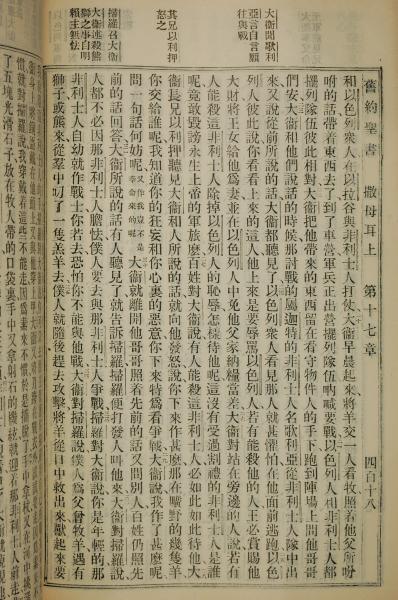 舊約聖書 撒母耳上 第十七章 四百十八
大衞聞歌利
亞言自言願
往與戰
其兄以利押
怒之
掃羅召大衞
大衞述殺熊
獅之事自明
賴主無怯
和以色列衆人在以拉谷與非利士人打仗大衞早晨起來將羊交一人看牧照着他父所吩
咐的話帶着東西去了到了車營軍兵正出營擺列隊伍吶喊要戰以色列人和非利士人都
擺列隊伍彼此相對大衞把他帶來的東西留在看守物件人的手下跑到陣場上問他哥哥
們安大衞和他們說話的時候那討戰的屬迦特的非利士人名歌利亞從非利士人隊中出
來又說從前所說的話大衞都聽見了以色列衆人看見那人就甚懼怕在他面前逃跑以色
列人彼此說你看看上來的這人他上來是要辱罵以色列人若有能殺他的人王必賞賜他
大財將王女給他爲妻並在以色列人中免他父家納糧當差大衞對站在旁邊的人說若有
人能殺這非利士人除掉以色列人的恥辱怎樣待他呢這沒有受過割禮的非利士人是誰
呢竟敢毀謗永生上帝的軍旅麽百姓對大衞說有人能殺這非利士人必如此如此待他大
衞長兄以利押聽見大衞和人所說的話就向他發怒說你下來作甚麽那在曠野的幾隻羊
你交給誰呢我知道你的狂妄和你心裏的惡意你下來特爲看爭戰大衞說我作了甚麽呢
問一句話何妨呢或作我豈不是奉命來的呢大衞就離開他哥哥照着先前的話又問別人百姓仍照先
前的話回答大衞所說的話有人聽見了就告訴掃羅掃羅便打發人叫他來大衞對掃羅說
人都不必因那非利士人膽怯僕人要去與那非利士人爭戰掃羅對大衞說你是年輕的那
非利士人自幼就作戰士你若去恐怕你不能與他戰大衞對掃羅說僕人爲父曾牧羊遇有
獅子或熊來從羣中叼了一隻羔羊去僕人就隨後趕去攻擊將羊從口中救出來獸起來要
了五塊光滑石子放在牧人帶的口袋裏手中又拿甩石的機絃就迎着那非利士人